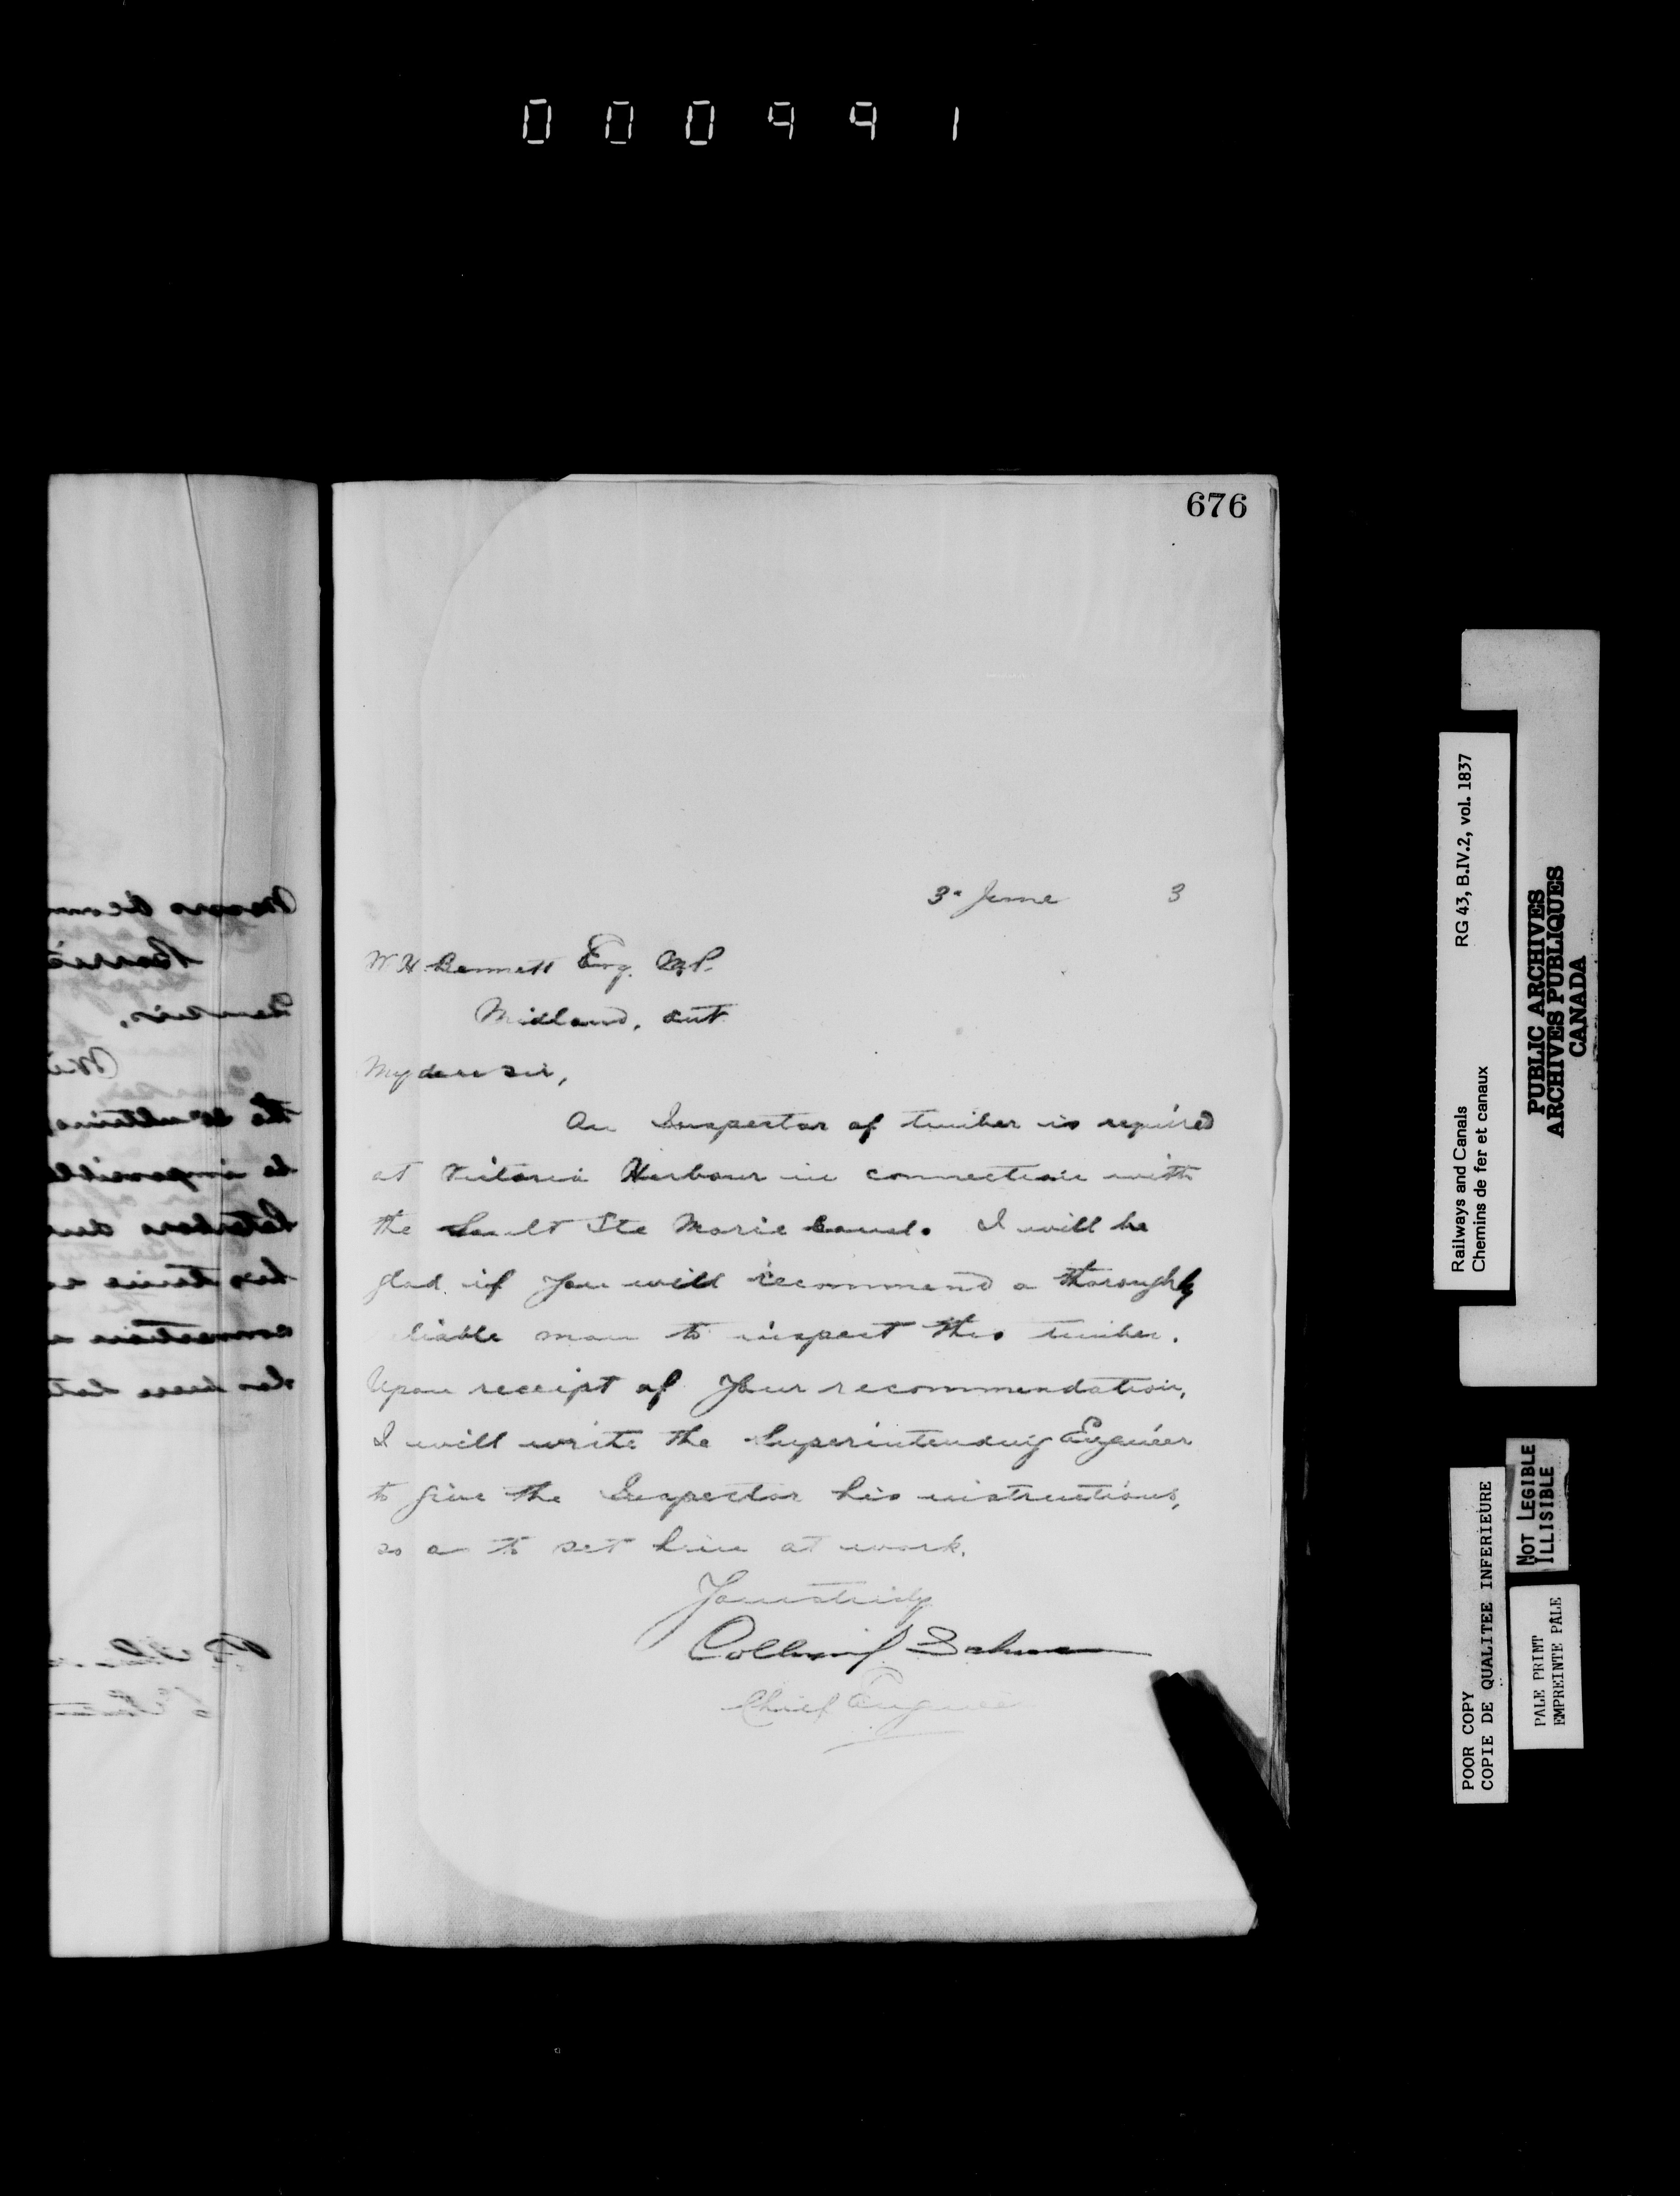 000991
676
3d June 3
W H Bennett Esq. M.P.
Midland, Ont
My dear Sir,
An Inspector of timber is required
at Victoria Harbour in connection with
the Sault Ste Marie Canal. I will be
glad if you will recommend a thoroughly
liable man to inspect this timber.
Upon receipt of your recommendation,
I will write the Superintending Engineer
to give the Inspector his instructions,
so as to set him at work.
Yours truly
Collingwood Schreiber
Chief Engineer
Railways and Canals RG 43, B.IV.2, vol. 1837
Chemins de fer et canaux
PUBLIC ARCHIVES
ARCHIVES PUBLIQUES
CANADA
POOR COPY
COPIE DE QUALITEE INFERIEURE
NOT LEGIBLE
ILLISIBLE
PALE PRINT
EMPREINTE PÂLE